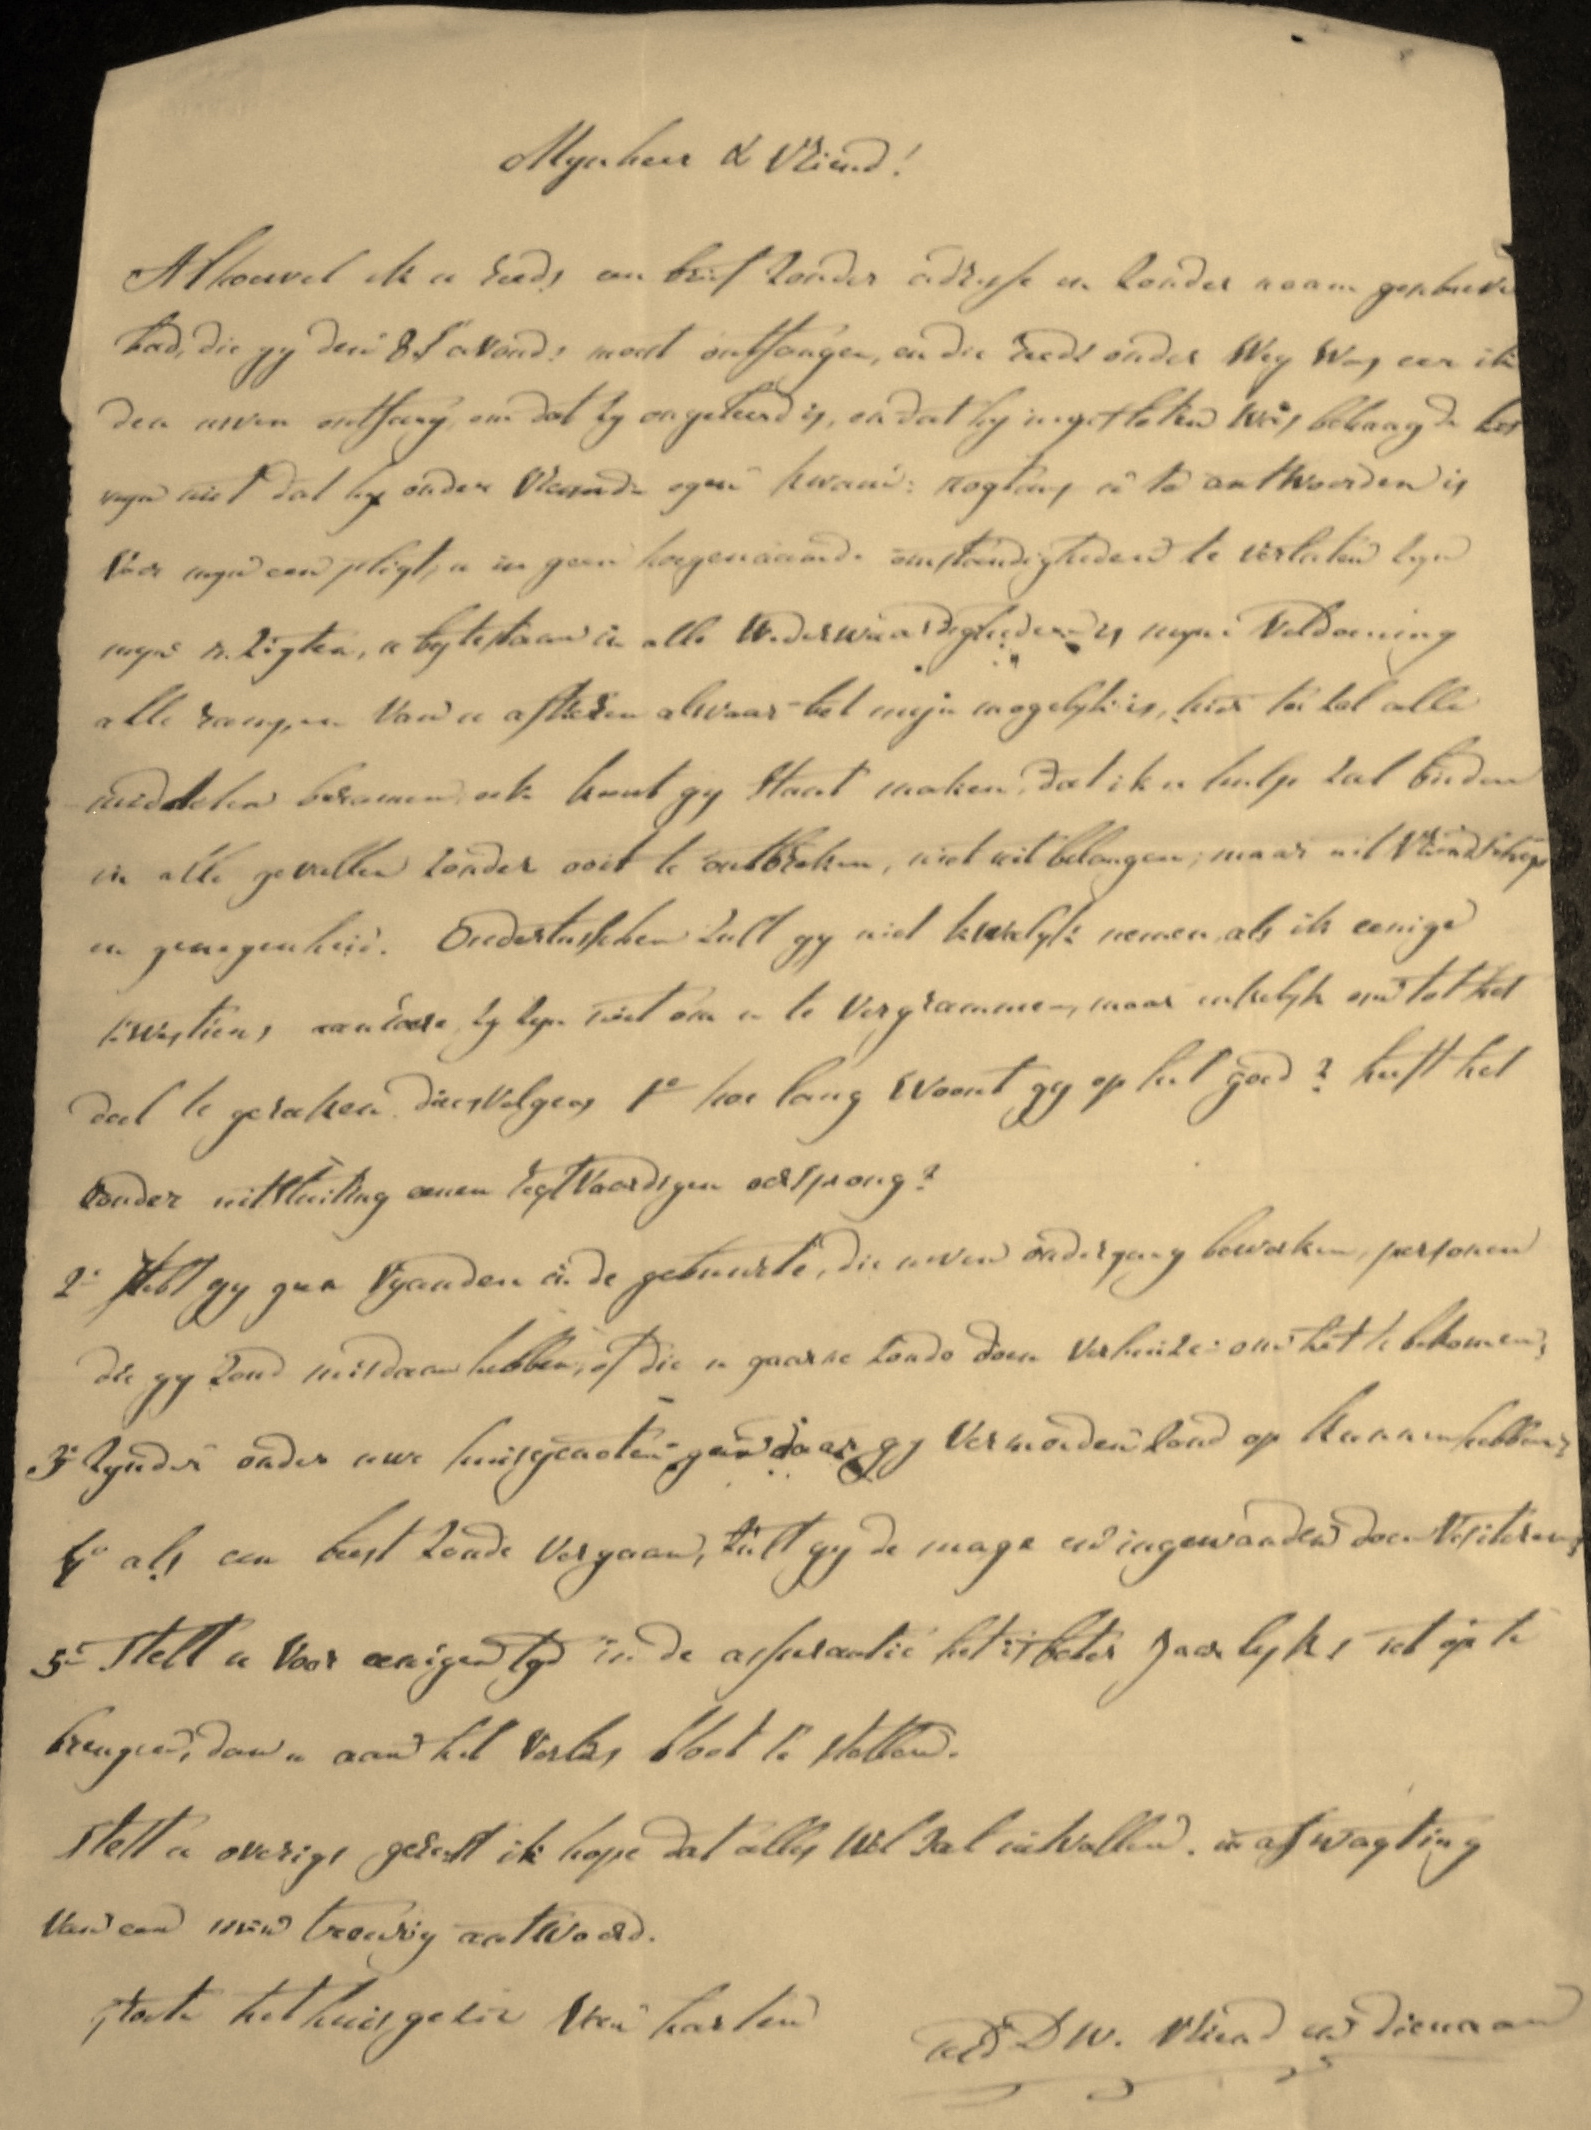 Mynheer & Vriend!
Alhoewel ik u reeds een brief zonder adresse en zonder naam geschreven
had, die gy den 8 s'avonds moet ontfangen, en die reeds onder weg was eer ik
den uwen ontfang, om dat hy ongeteerd is, en dat hy ingesloten was behaagde het
myn niet dat hy onder vreemde ogen kwam: nogtans u te antwoorden is
voor myn een pligt, u in geen hoegenaamde omstandigheden te verlaten zyn
myn inzigten, u bytestaan in alle wederwaardigheden is myne voldoening
alle rampen van u afkeren alwaar het mijn mogelyk is, hier toe zal alle
middelen beramen, ook kont gy staat maken, dat ik u hulp zal bieden
in alle gevallen zonder ooit te ontbreken, niet uit belangen; maar uit vriendschap
en genegenheid. Ondertusschen zult gy niet kwalyk nemen, als ik eenige
kwestiens aanvoere, zy zyn niet om u te vergrammen, maar enkelyk om tot het
doel te geraken. diesvolgens 1° hoe lang woont gy op het goed? heeft het
zonder uitsluiting eenen regtvaardigen oorsprong?
2° Hebt gy geen vyanden in de gebuurte, die uwen ondergang bewerken, personen
die gy zoud misdaan hebben, of die u gaarne zoude doen verhuizen om het te bekomen;
3° Zynder onder uwe huisgenoten geen daar gy vermoeden zoud op kunnen hebben;
4° als een beest zoude vergaan, zult gy de mage en ingewanden doen visiteren;
5° Stelt u voor eenigen tyd in de assurantie het is beter Jaarlyks iet op te
brengen, dan u aan het verlies bloot te stellen.
Stelt u overigs gerust ik hope dat alles wel zal uitvallen. in afwagting
van een min treurig antwoord.
groete het huisgezin van harten
UED DW. Vriend en dienaar